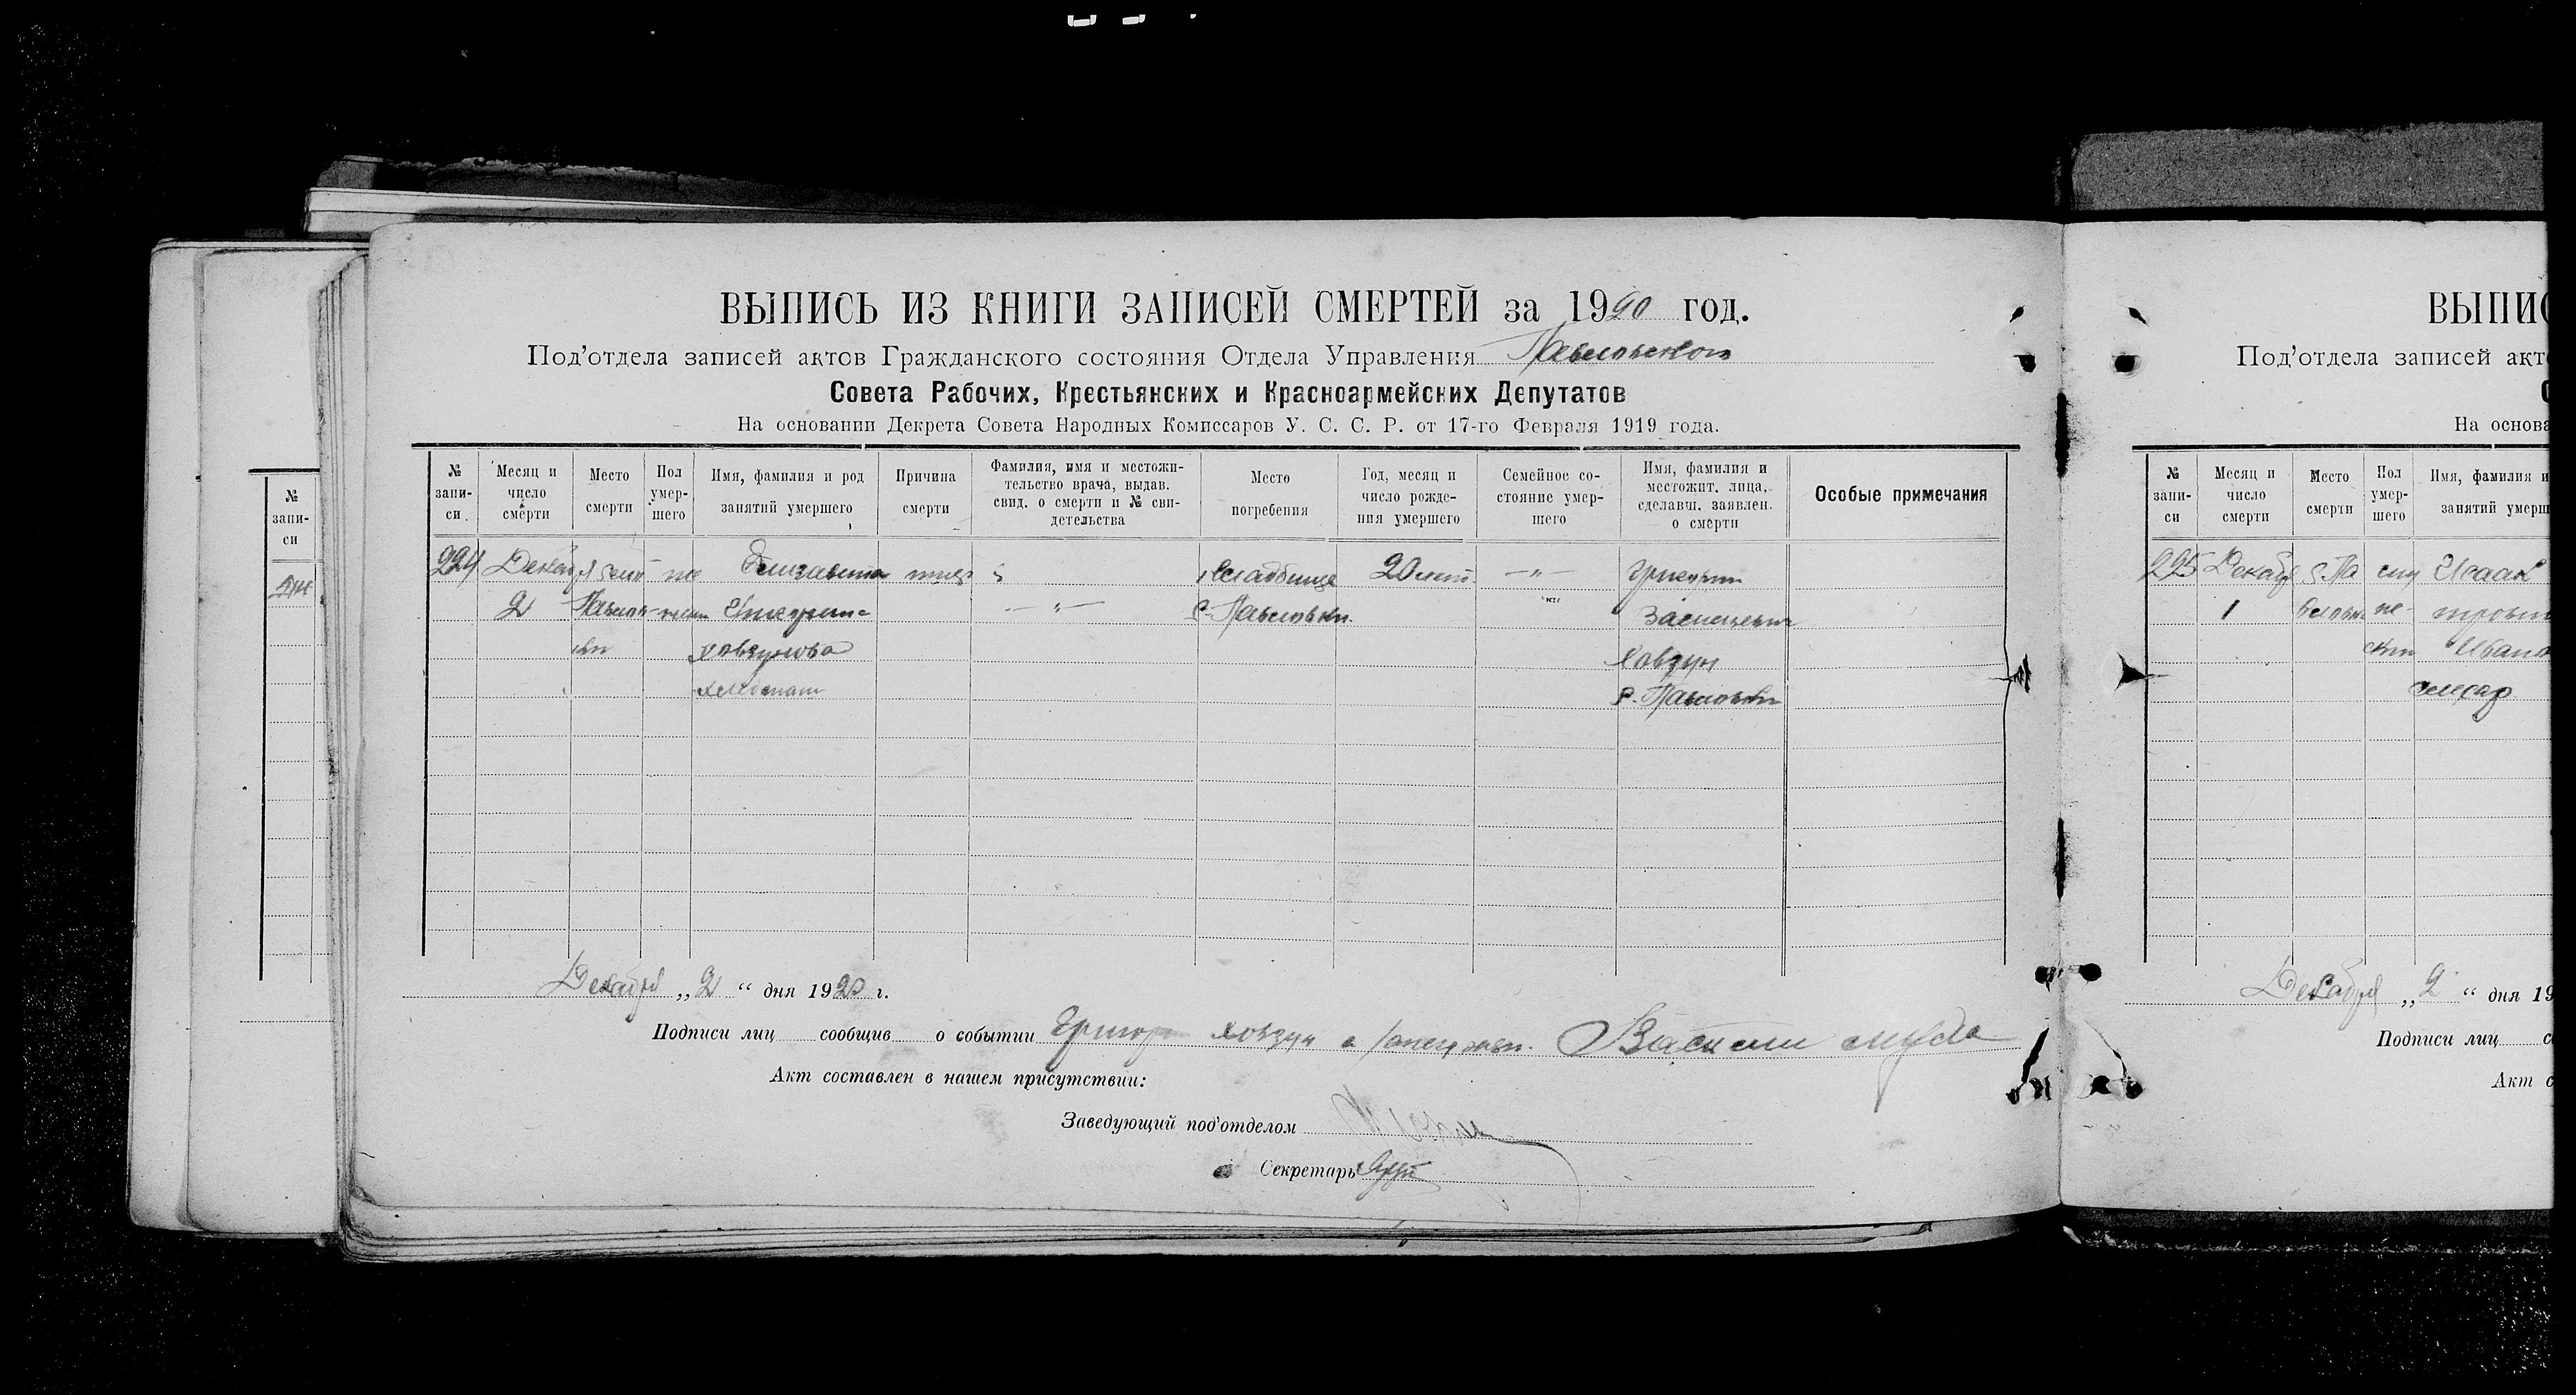 ВЫПИСЬ ИЗ КНИГИ ЗАПИСЕЙ СМЕРТЕЙ за 1920 год.
Под'отдела записей актов Гражданского состояния Отдела Управления Павловского
Совета Рабочих, Крестьянских и Красноармейских Депутатов
На основании Декрета Совета Народных Комиссаров У. С. С. Р. от 17-го Февраля 1919 года.
№ запи-си
Месяц и число смерти
Место смерти
Пол умер-шего
Имя, фамилия и род занятий умершего
Причина смерти
Фамилия, имя и местожи-тельство врача, выдав. свид. о смерти и № сви-детельства
Место погребения
Год, месяц и число рожде-ния умершего
Семейное со-стояние умер-шего
Имя, фамилия и местожит. лица, сделавш. заявлен. о смерти
Особые примечания
224 Декабря Елизавета кладбище 20 лет Григорий
2 Павлов- с. Павловки Васильевич
ки Ховзунова Ховзун
хлебопаш с. Павловки
Декабря „ 2 “ дня 1920 г.
Подписи лиц сообщив о событии Григорий Ховзун а Василий
Акт составлен в нашем присутствии:
Заведующий под'отделом
Секретарь
№ запи-си
ВЫПИС
Под'отдела записей акт
С
На основа
№ запи-си
Месяц и число смерти
Место смерти
Пол умер-шего
Имя, фамилия и занятий умерш
225 Декабр с. Па Исаак
1 вловк
Иван
слесар
Декабря „ 2 “ дня 19
Подписи лиц с
Акт с